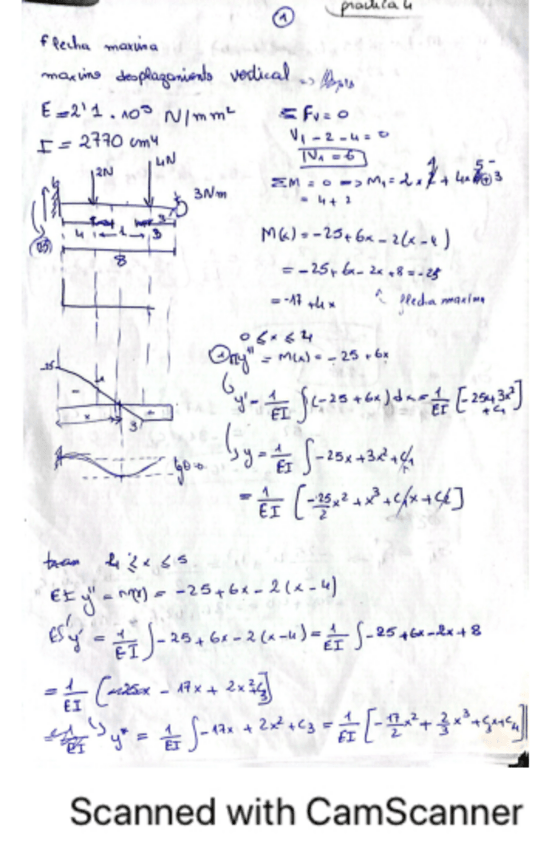 1
practica 4
flecha maxima
maximo desplazamiento vertical =>
E = 2'1 . 10⁵ N/mm²
I = 2770 cm⁴
Σ Fv = 0
V₁ - 2 - 4 = 0
V₁ = 6
2N
4N
3Nm
ΣM = 0 => M₁ = 2 x
= 4 +
M(x) = -25 + 6x - 2(x - 4)
= -25 + 6x - 2x + 8 = -25
= -17 + 4x
flecha maxima
4
3
8
0 ≤ x ≤ 4
1 EIy'' = M(x) = -25 + 6x
y' = 1/EI ∫(-25 + 6x)dx = 1/EI [-25x + 3x² + C₁]
y = 1/EI ∫ -25x + 3x² + C₁
= 1/EI [-25/2 x² + x³ + C₁x + C₂]
-25
-
x
3
+
tram 4 ≤ x ≤ 5
EI y'' = M(x) = -25 + 6x - 2(x - 4)
y' = 1/EI ∫ -25 + 6x - 2(x - 4) = 1/EI ∫ -25 + 6x - 2x + 8
= 1/EI [ - 17x + 2x² + C₃]
y = 1/EI ∫ -17x + 2x² + C₃ = 1/EI [-17/2 x² + 2/3 x³ + C₃x + C₄]
Scanned with CamScanner